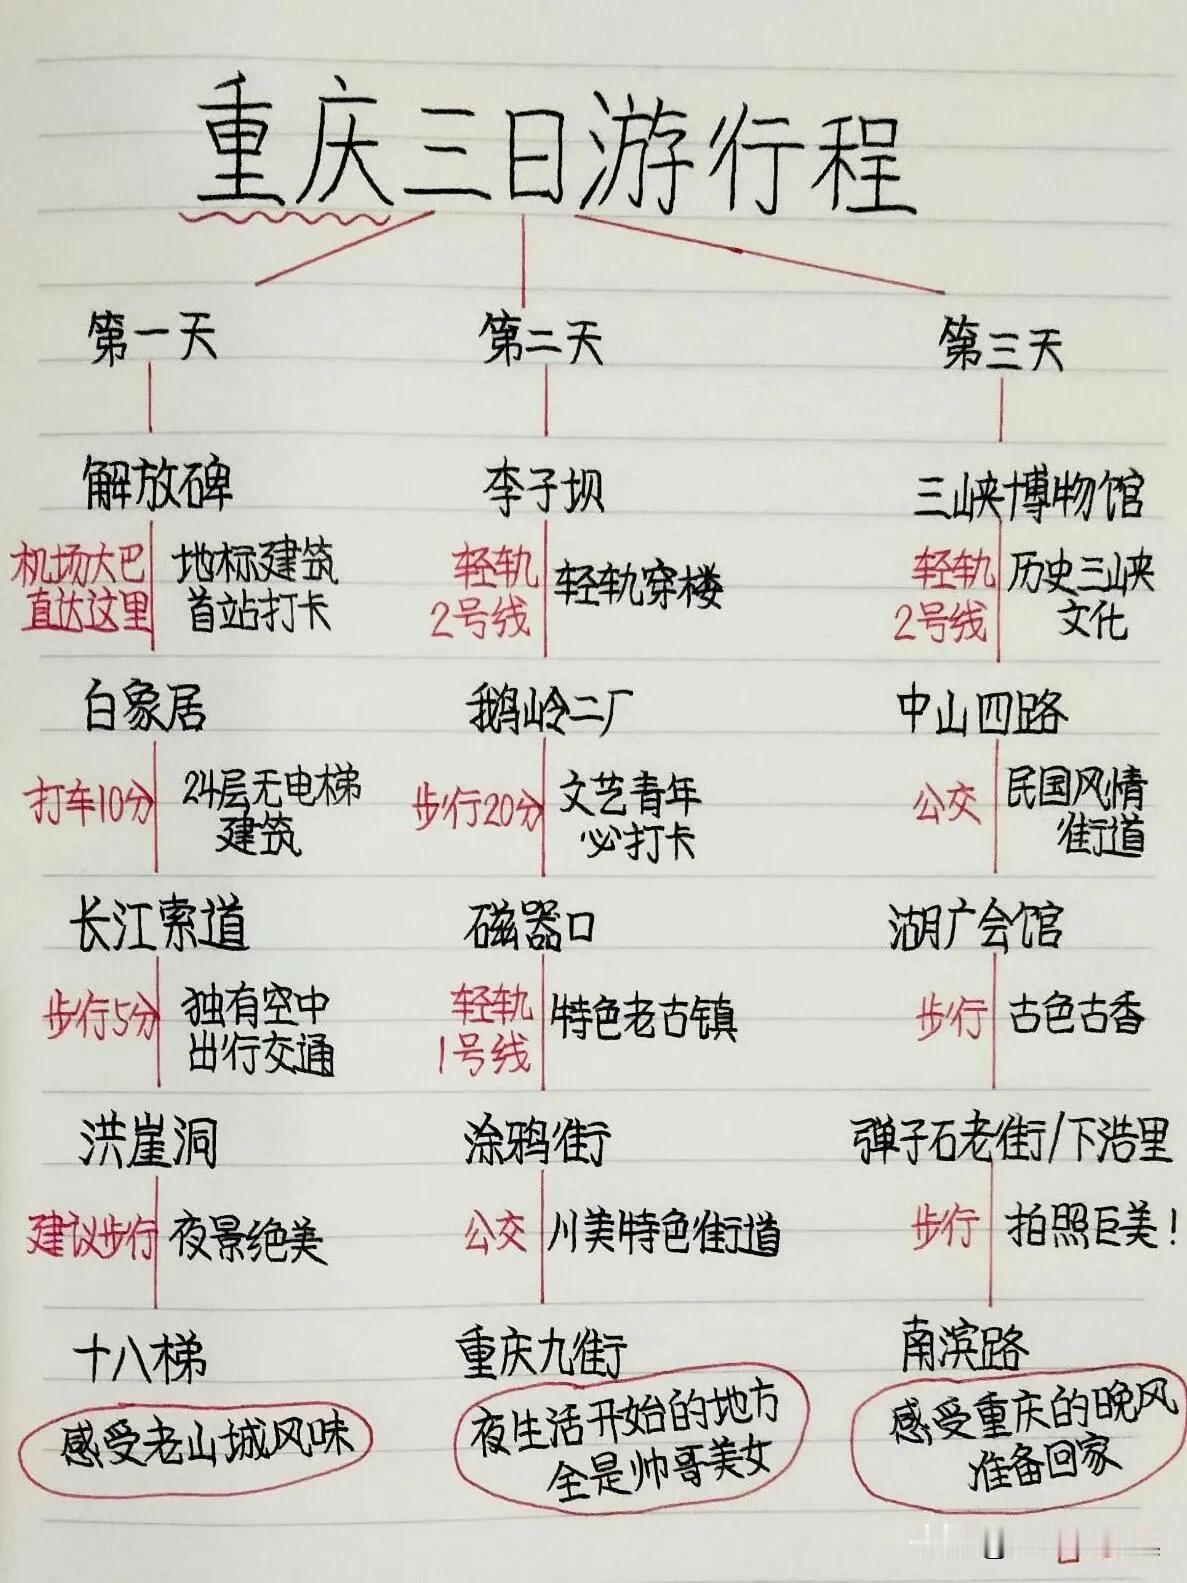 重庆三日游行程
第一天
解放碑
机场大巴
直达这里
地标建筑
首站打卡
白象居
打车10分
24层无电梯
建筑
长江索道
步行5分
独有空中
出行交通
洪崖洞
建议步行
夜景绝美
十八梯
感受老山城风味
第二天
李子坝
轻轨
2号线
轻轨穿楼
鹅岭二厂
步行20分
文艺青年
必打卡
磁器口
轻轨
1号线
特色老古镇
涂鸦街
公交
川美特色街道
重庆九街
夜生活开始的地方
全是帅哥美女
第三天
三峡博物馆
轻轨
2号线
历史三峡
文化
中山四路
公交
民国风情
街道
湖广会馆
步行
古色古香
弹子石老街/下浩里
步行
拍照巨美！
南滨路
感受重庆的晚风
准备回家